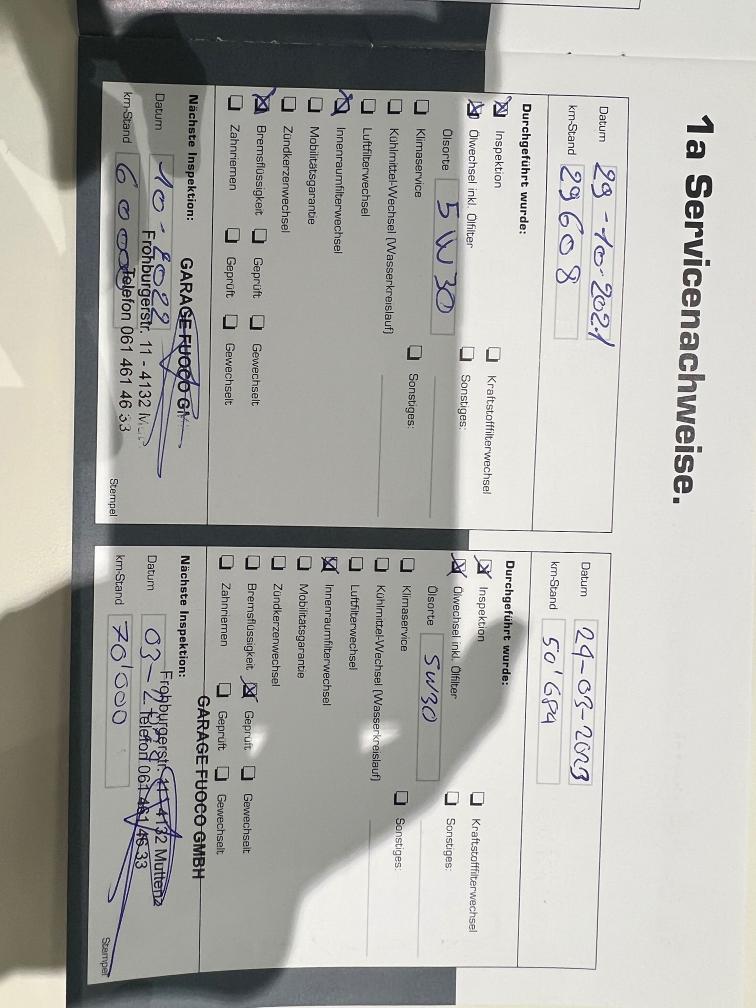 1a Servicenachweise.
Datum 29-10-2021
km-Stand 29608
Durchgeführt wurde:
☒ Inspektion ☐ Kraftstofffilterwechsel
☒ Ölwechsel inkl. Ölfilter ☐ Sonstiges:
Ölsorte 5W30
☐ Klimaservice ☐ Sonstiges:
☐ Kühlmittel-Wechsel (Wasserkreislauf)
☐ Luftfilterwechsel
☒ Innenraumfilterwechsel
☐ Mobilitätsgarantie
☐ Zündkerzenwechsel
☒ Bremsflüssigkeit ☐ Geprüft ☐ Gewechselt
☐ Zahnriemen ☐ Geprüft ☐ Gewechselt
Nächste Inspektion:
GARAGE FUOCO
Datum 10-2022
Frohburgerstr. 11 - 4132
km-Stand 60000
Telefon 061 461 46 33
Stempel
Datum 24-03-2023
km-Stand 50'684
Durchgeführt wurde:
☒ Inspektion ☐ Kraftstofffilterwechsel
☒ Ölwechsel inkl. Ölfilter ☐ Sonstiges:
Ölsorte 5W30
☐ Klimaservice ☐ Sonstiges:
☐ Kühlmittel-Wechsel (Wasserkreislauf)
☐ Luftfilterwechsel
☒ Innenraumfilterwechsel
☐ Mobilitätsgarantie
☐ Zündkerzenwechsel
☐ Bremsflüssigkeit ☒ Geprüft ☐ Gewechselt
☐ Zahnriemen ☐ Geprüft ☐ Gewechselt
Nächste Inspektion:
GARAGE FUOCO GMBH
Datum
Frohburgerstr. 11 4132 Muttenz
Telefon 061 461 46 33
km-Stand 70'000
Stempel